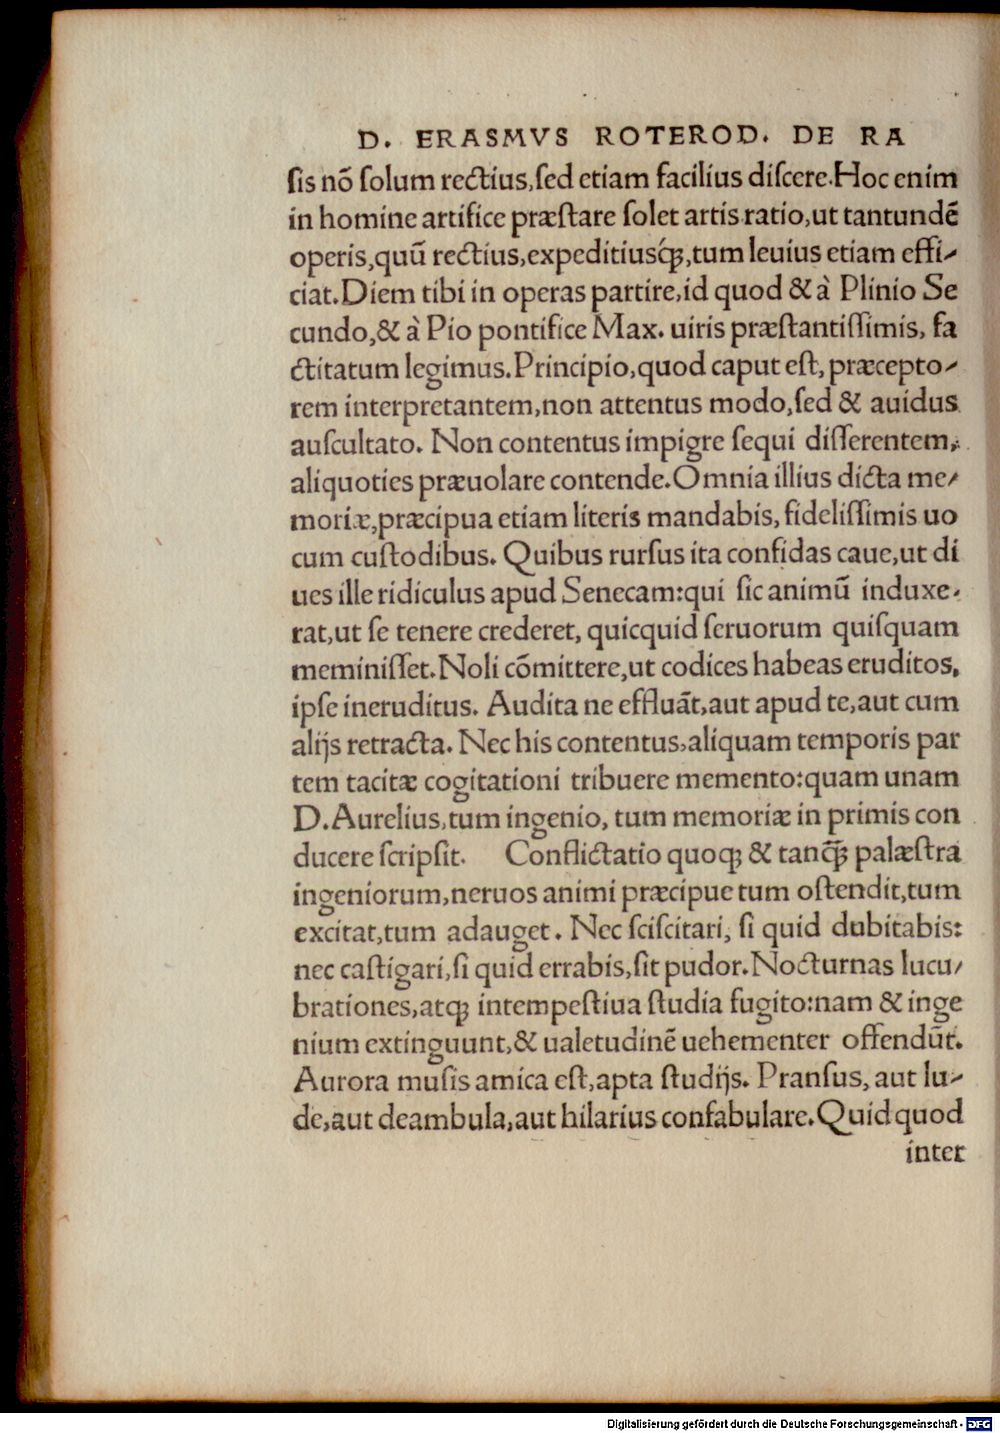 D. ERASMVS ROTEROD. DE RA
ſis nõ ſolum rectius,ſed etiam facilius diſcere.Hoc enim
in homine artifice præſtare ſolet artis ratio,ut tantundẽ
operis,quũ rectius,expeditiusq́ꝫ,tum leuius etiam effi-
ciat.Diem tibi in operas partire,id quod & à Plinio Se
cundo,& à Pio pontifice Max. uiris præſtantiſſimis, fa
ctitatum legimus.Principio,quod caput eſt, præcepto-
rem interpretantem,non attentus modo,ſed & auidus
auſcultato. Non contentus impigre ſequi diſſerentem,
aliquoties præuolare contende.Omnia illius dicta me-
moriæ,præcipua etiam literis mandabis, fideliſſimis uo
cum cuſtodibus. Quibus rurſus ita confidas caue,ut di
ues ille ridiculus apud Senecam:qui ſic animũ induxe-
rat,ut ſe tenere crederet, quicquid ſeruorum quiſquam
meminiſſet.Noli cõmittere,ut codices habeas eruditos,
ipſe ineruditus. Audita ne effluãt,aut apud te,aut cum
alijs retracta. Nec his contentus,aliquam temporis par
tem tacitæ cogitationi tribuere memento:quam unam
D.Aurelius,tum ingenio, tum memoriæ in primis con
ducere ſcripſit. Conflictatio quoqꝫ & tanq̃ꝫ palæſtra
ingeniorum,neruos animi præcipue tum oſtendit,tum
excitat,tum adauget. Nec ſciſcitari, ſi quid dubitabis:
nec caſtigari,ſi quid errabis,ſit pudor.Nocturnas lucu-
brationes,atqꝫ intempeſtiua ſtudia fugito:nam & inge
nium extinguunt,& ualetudinẽ uehementer offendũt.
Aurora muſis amica eſt,apta ſtudijs. Pranſus, aut lu-
de,aut deambula,aut hilarius confabulare.Quid quod
inter
Digitalisierung gefördert durch die Deutsche Forschungsgemeinschaft - DFG